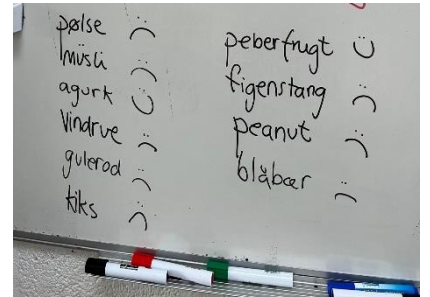 pølse ☹
müsli ☹
agurk ☺
Vindrue ☹
gulerod ☹
kiks ☹
peberfrugt ☺
figenstang ☹
peanut ☹
blåbær ☹